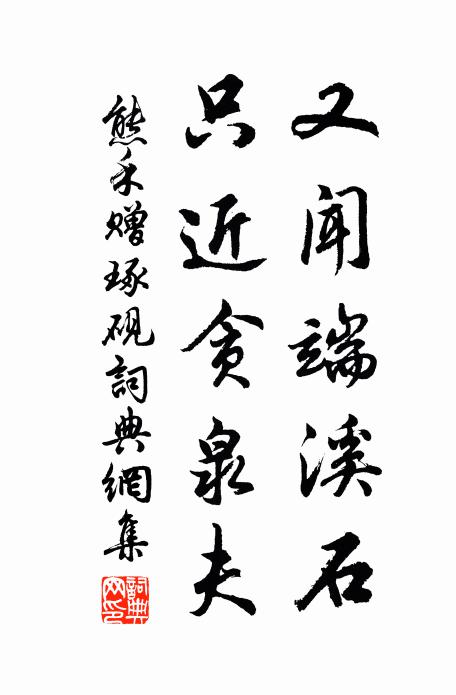 又闻端溪石
只近贪泉夫
熊禾赠琢砚詞典網集
詞典
网印